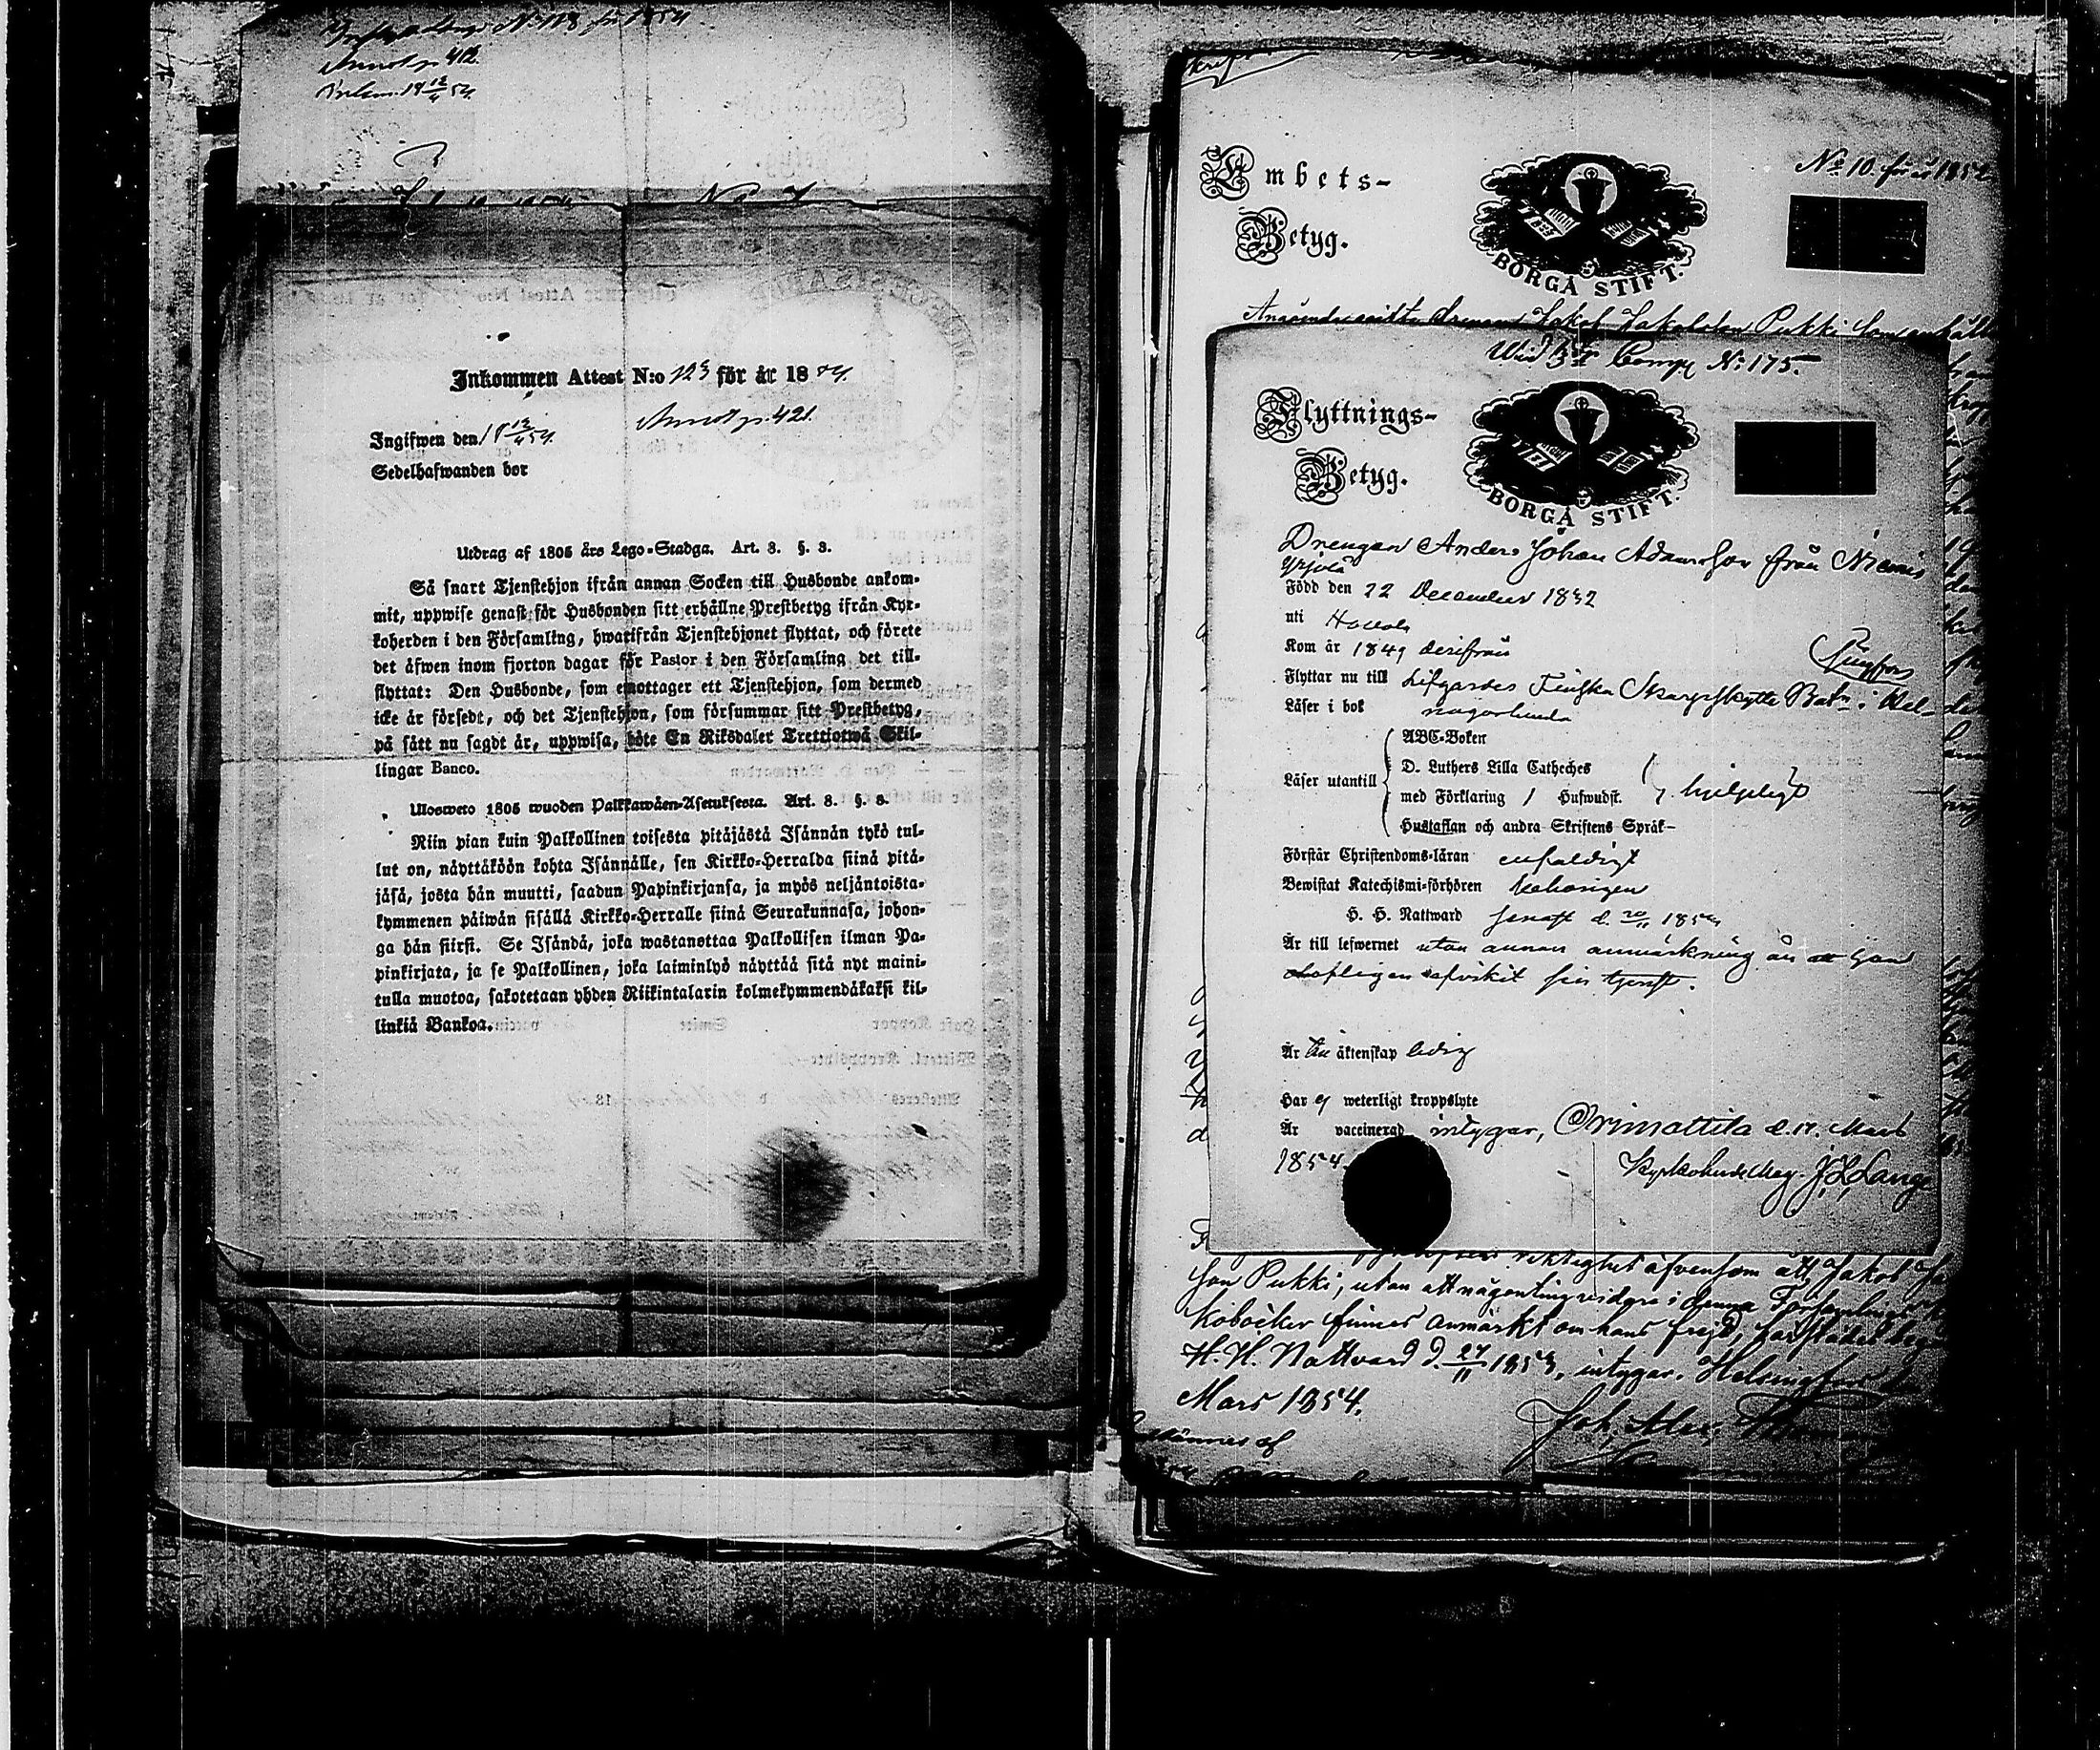 No 113 för 1854.
412.
18 12/4 54.
Inkommen Attest N:o 123 för år 1854.
p. 421.
Ingifwen den 18 12/4 54.
Sedelhafwanden bor
Utdrag af 1805 års Lego-Stadga. Art. 3. §. 3.
Så snart Tjenstehjon ifrån annan Socken till Husbonde ankom-
mit, uppwise genast för Husbonden sitt erhållne Prestbetyg ifrån Kyr-
koherden i den Församling, hwarifrån Tjenstehjonet flyttat, och förete
det äfwen inom fjorton dagar för Pastor i den Församling det till-
flyttat: Den Husbonde, som emottager ett Tjenstehjon, som dermed
icke är försedt, och det Tjenstehjon, som försummar sitt Prestbetyg,
på sätt nu sagdt är, uppwisa, böte En Riksdaler Trettiotwå Skil-
lingar Banco.
Ulosweto 1805 wuoden Palkkawäen-Asetuksesta. Art. 3. §. 3.
Niin pian kuin Palkollinen toisesta pitäjästä Isännän tykö tul-
lut on, näyttäköön kohta Isännälle, sen Kirkko-Herralda siinä pitä-
jäsä, josta hän muutti, saadun Papinkirjansa, ja myös neljäntoista-
kymmenen päiwän sisällä Kirkko-Herralle siinä Seurakunnasa, johon-
ga hän siirsi. Se Isändä, joka wastanottaa Palkollisen ilman Pa-
pinkirjata, ja se Palkollinen, joka laiminlyö näyttää sitä nyt maini-
tulla muotoa, sakotetaan yhden Riikintalarin kolmekymmendäkaksi kil-
linkiä Bankoa.
Embets-
Betyg.
BORGÅ STIFT.
No 10. för år 1854
Jakob Jakobsson Pukki som
Comp No 175.
Flyttnings-
Betyg.
BORGÅ STIFT.
Drengen Anders Johan Adamsson från Niemis
Yrjölä
Född den 22 December 1832
uti Hollola
Kom år 1849 derifrån
Flyttar nu till Lifgardes Finska Skarpskytte Batn i Hel-
singfors
Läser i bok någorlunda
ABC-Boken
D. Luthers Lilla Catheches
Läser utantill
med Förklaring / Hufwudst. hjelpligt
Hustaflan och andra Skriftens Språk-
Förstår Christendoms-läran enfaldigt
Bewistat Katechismi-förhören behörigen
H. H. Nattward senast d. 20/11 1853
Är till lefwernet utan annan anmärkning än att han
olofligen afvikit sin tjenst.
Är till äktenskap ledig
Har ej weterligt kroppslyte
Är vaccinerad intygar, Orimattila d. 17. Mars
1854.
J. L. Lange
riktighet äfvensom att Jakob
son Pukki, utan att någonting vidare i denna Församlings
koböcker finnes anmärkt om hans frejd,
H. H. Nattvard d. 27/11 1853, intygar. Helsingfors
Mars 1854.
Joh. Alex.